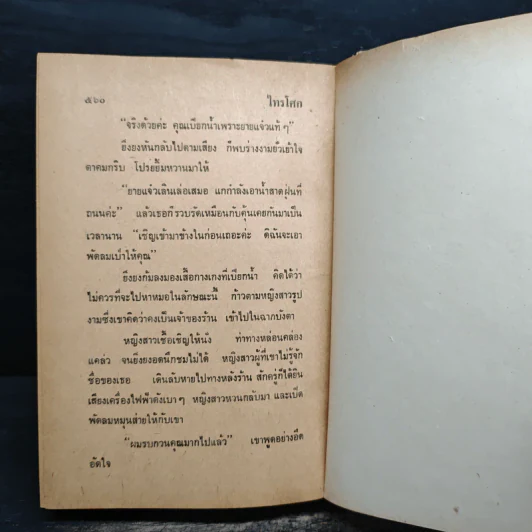 ๕๖๐ ไทรโศก
"จริงด้วยค่ะ คุณเปียกน้ำเพราะยายแจ๋วแท้ ๆ"
ยิ่งยงหันกลับไปตามเสียง ก็พบร่างงามยั่วเย้าใจ
ตาคมกริบ โปรยยิ้มหวานมาให้
"ยายแจ๋วเลินเล่อเสมอ แกกำลังเอาน้ำสาดฝุ่นที่
ถนนค่ะ" แล้วเธอก็รวบรัดเหมือนกับคุ้นเคยกันมาเป็น
เวลานาน "เชิญเข้ามาข้างในก่อนเถอะค่ะ ดิฉันจะเอา
พัดลมเป่าให้คุณ"
ยิ่งยงก้มลงมองเสื้อกางเกงที่เปียกน้ำ คิดได้ว่า
ไม่ควรที่จะไปหาหมอในลักษณะนี้ ก้าวตามหญิงสาวรูป
งามซึ่งเขาคิดว่าคงเป็นเจ้าของร้าน เข้าไปในฉากบังตา
หญิงสาวเชื้อเชิญให้นั่ง ท่าทางหล่อนคล่อง
แคล่ว จนยิ่งยงอดนึกชมไม่ได้ หญิงสาวผู้ที่เขาไม่รู้จัก
ชื่อของเธอ เดินลับหายไปทางหลังร้าน สักครู่ก็ได้ยิน
เสียงเครื่องไฟฟ้าดังเบา ๆ หญิงสาวหวนกลับมา และเปิด
พัดลมหมุนส่ายให้กับเขา
"ผมรบกวนคุณมากไปแล้ว" เขาพูดอย่างอึด
อัดใจ